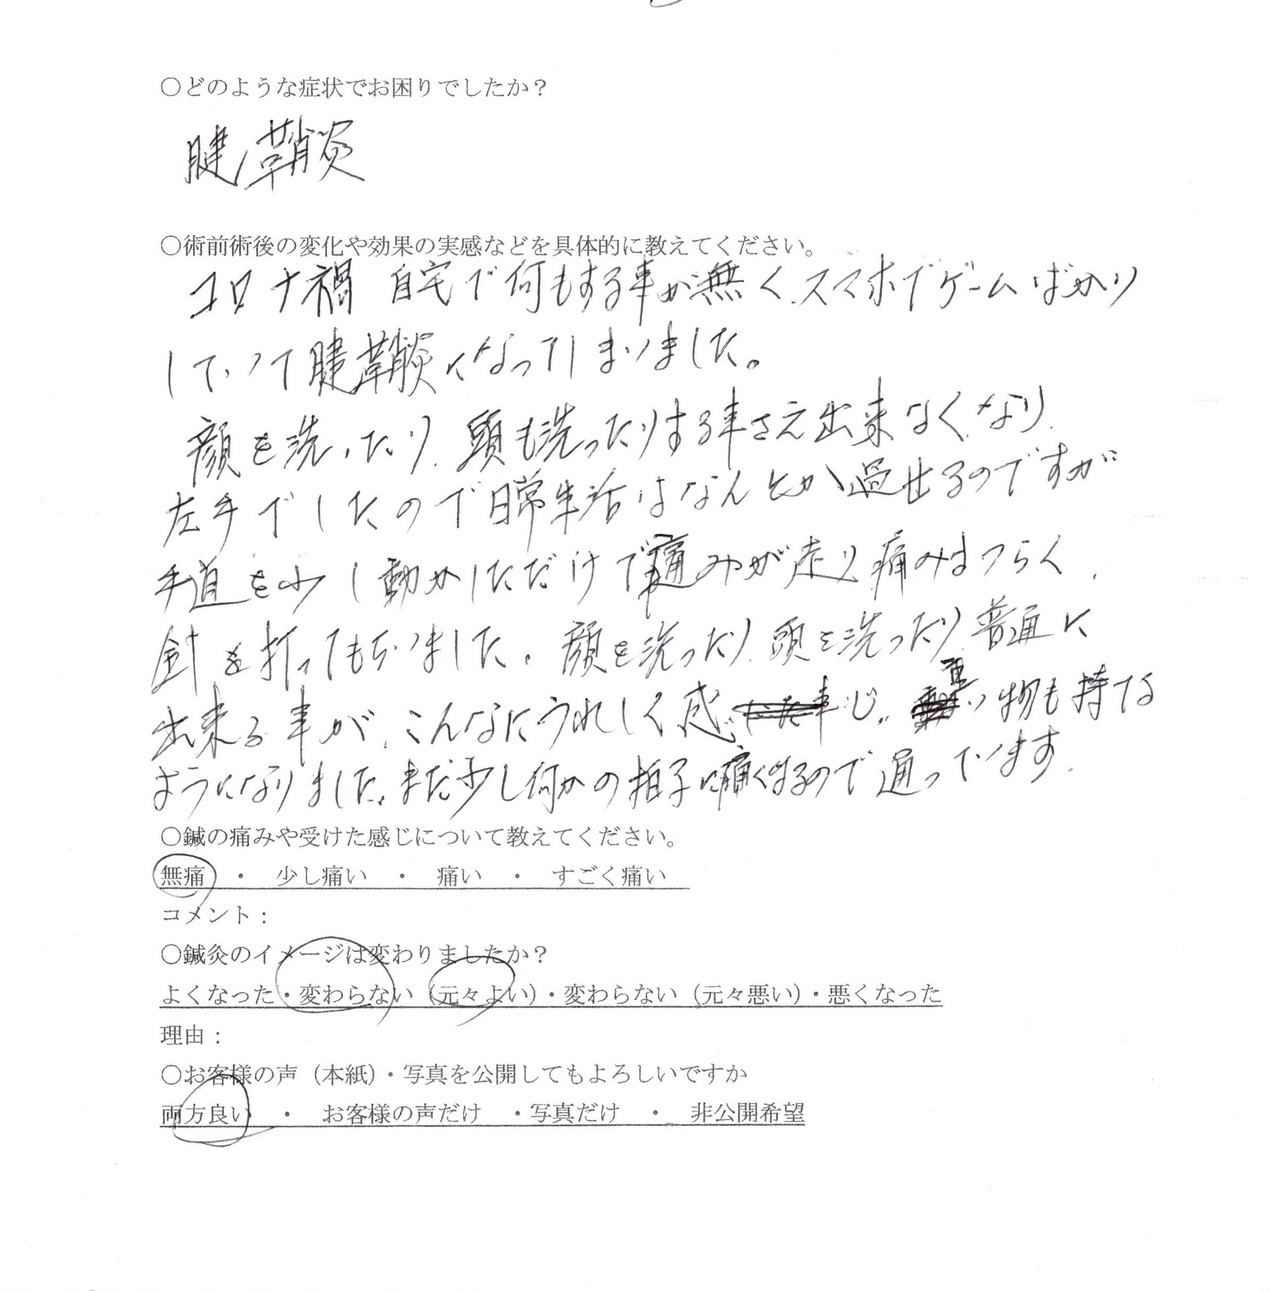 〇どのような症状でお困りでしたか？
腱鞘炎
〇術前術後の変化や効果の実感などを具体的に教えてください。
コロナ禍 自宅で何もする事が無く、スマホでゲームばかり
していて腱鞘炎になってしまいました。
顔を洗ったり、頭も洗ったりする事さえ出来なくなり、
左手でしたので日常生活はなんとか過せるのですが
手首を少し動かしただけで痛みが走り痛みはつらく、
針を打ってもらいました。顔を洗ったり 頭を洗ったり 普通に
出来る事が、こんなにうれしく感じ、重い物も持てる
ようになりました。まだ少し何かの拍子に痛くはるので通っています。
〇鍼の痛みや受けた感じについて教えてください。
無痛 ・ 少し痛い ・ 痛い ・ すごく痛い
コメント：
〇鍼灸のイメージは変わりましたか？
よくなった・変わらない（元々よい）・変わらない（元々悪い）・悪くなった
理由：
〇お客様の声（本紙）・写真を公開してもよろしいですか
両方良い ・ お客様の声だけ ・写真だけ ・ 非公開希望